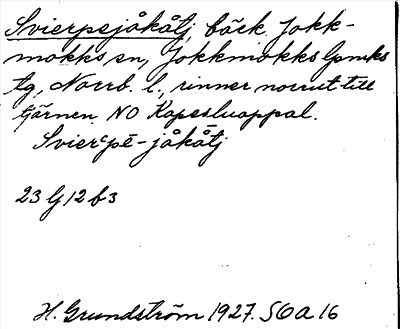 Svierpejåkåtj, bäck, Jokk-
mokks sn, Jokkmokks lpmks
tg, Norrb. l., rinner norrut till
tjärnen NO Kapesluoppal.
Svierʿpē-jåkåtj
23 G 12 b 3
H. Grundström 1927. SOA 16